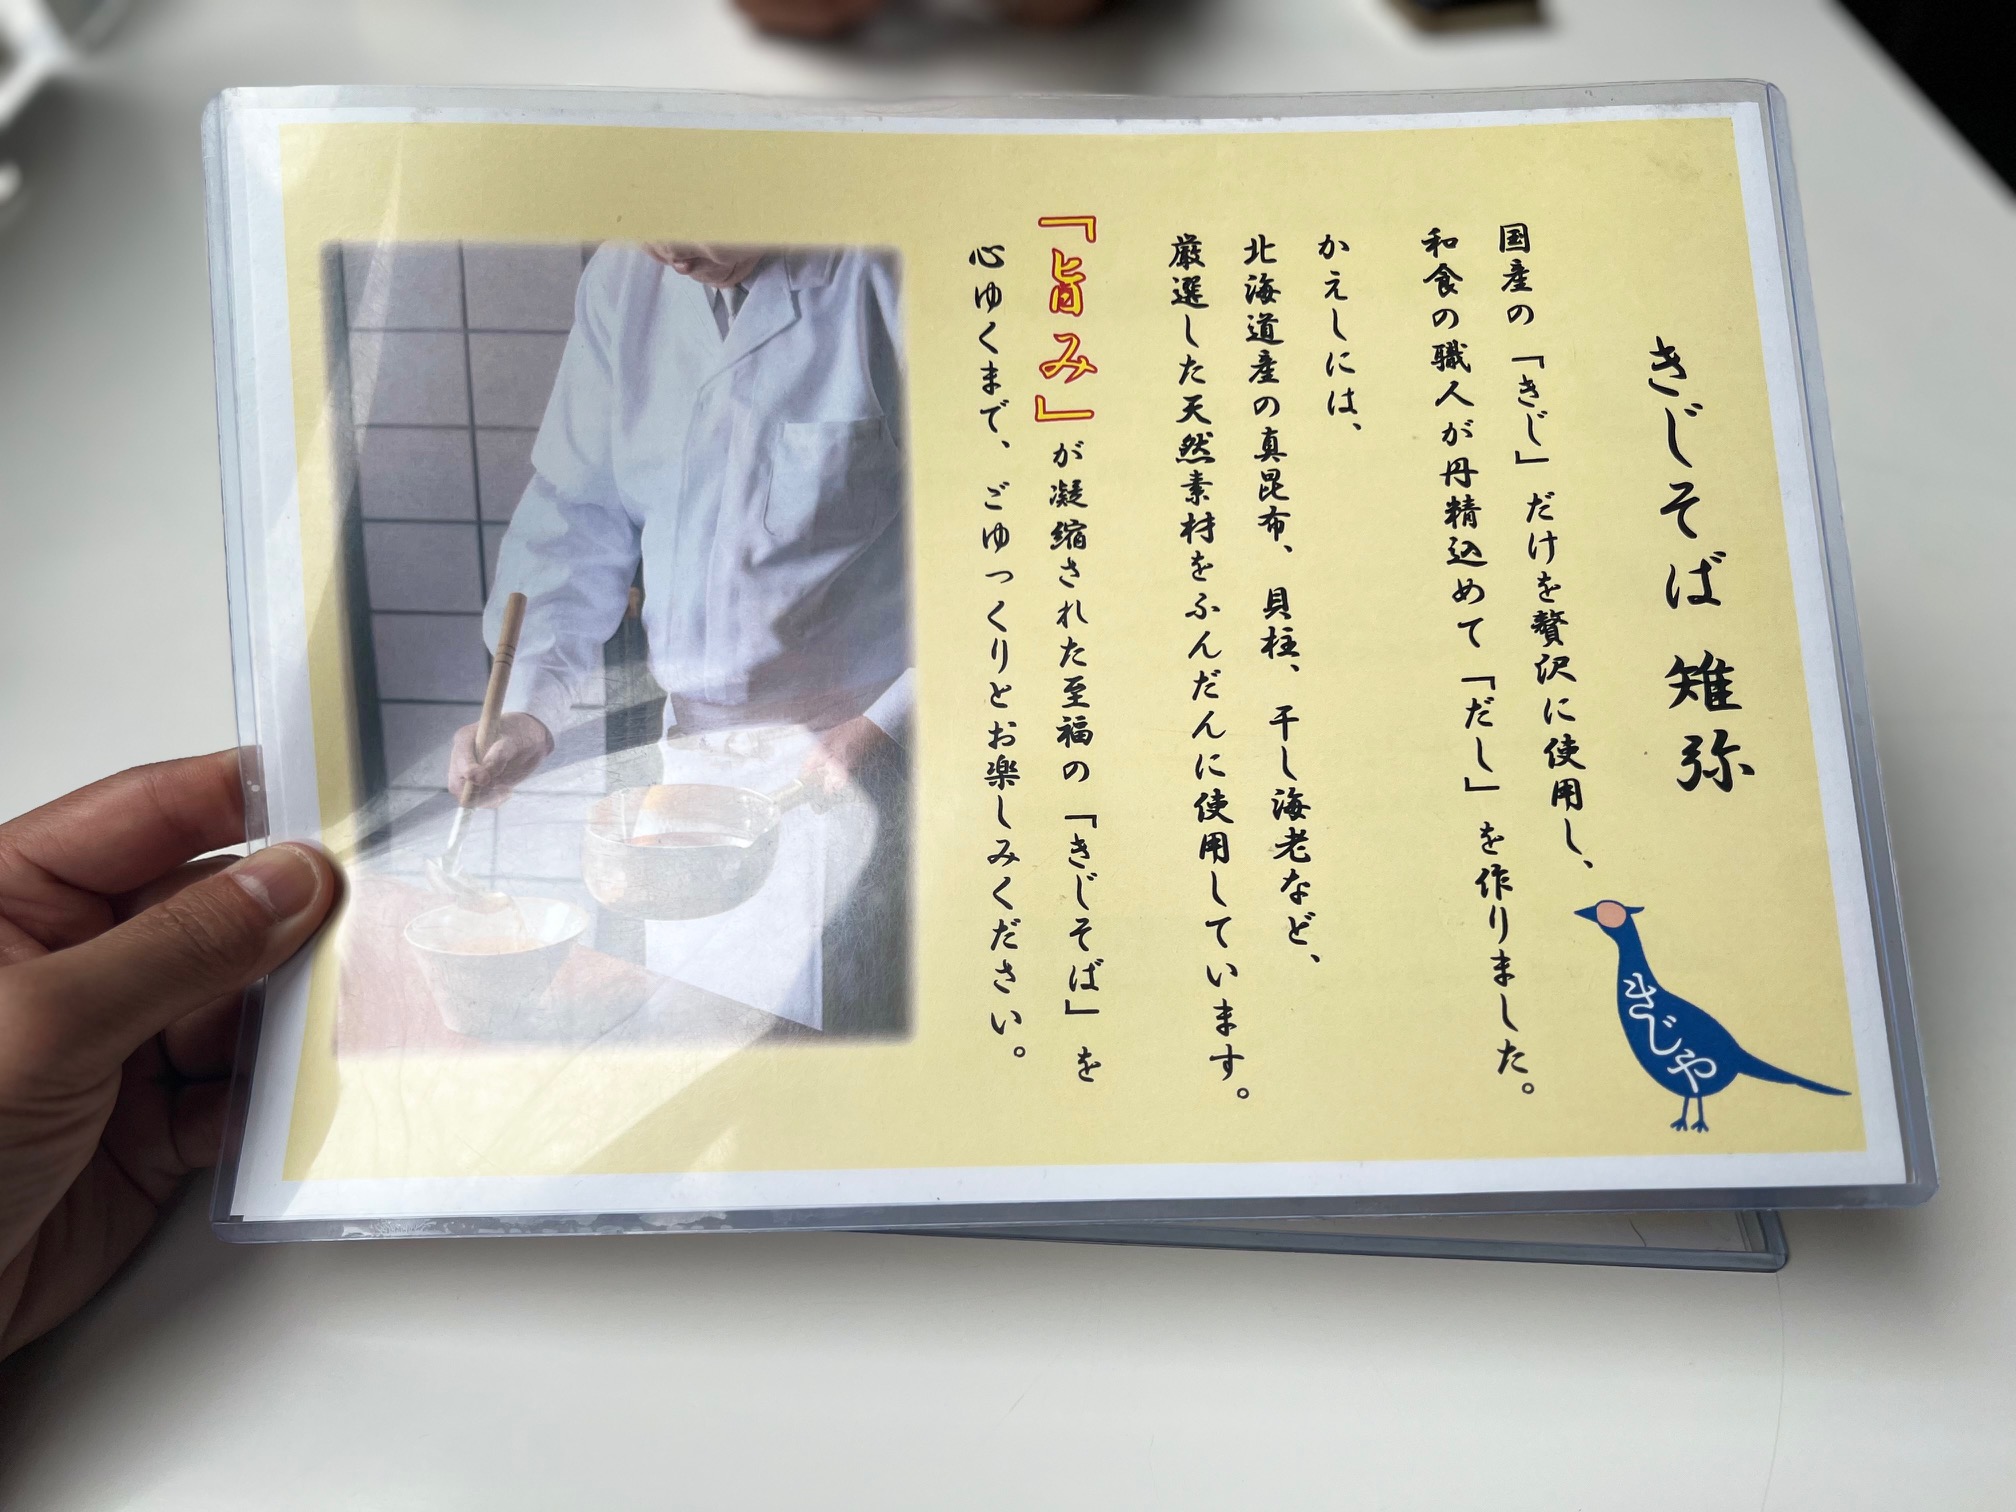 きじそば 雉弥
国産の「きじ」だけを贅沢に使用し、
和食の職人が丹精込めて「だし」を作りました。
かえしには、
北海道産の真昆布、貝柱、干し海老など、
厳選した天然素材をふんだんに使用しています。
『旨み』が凝縮された至福の「きじそば」を
心ゆくまで、ごゆっくりとお楽しみください。
きじや